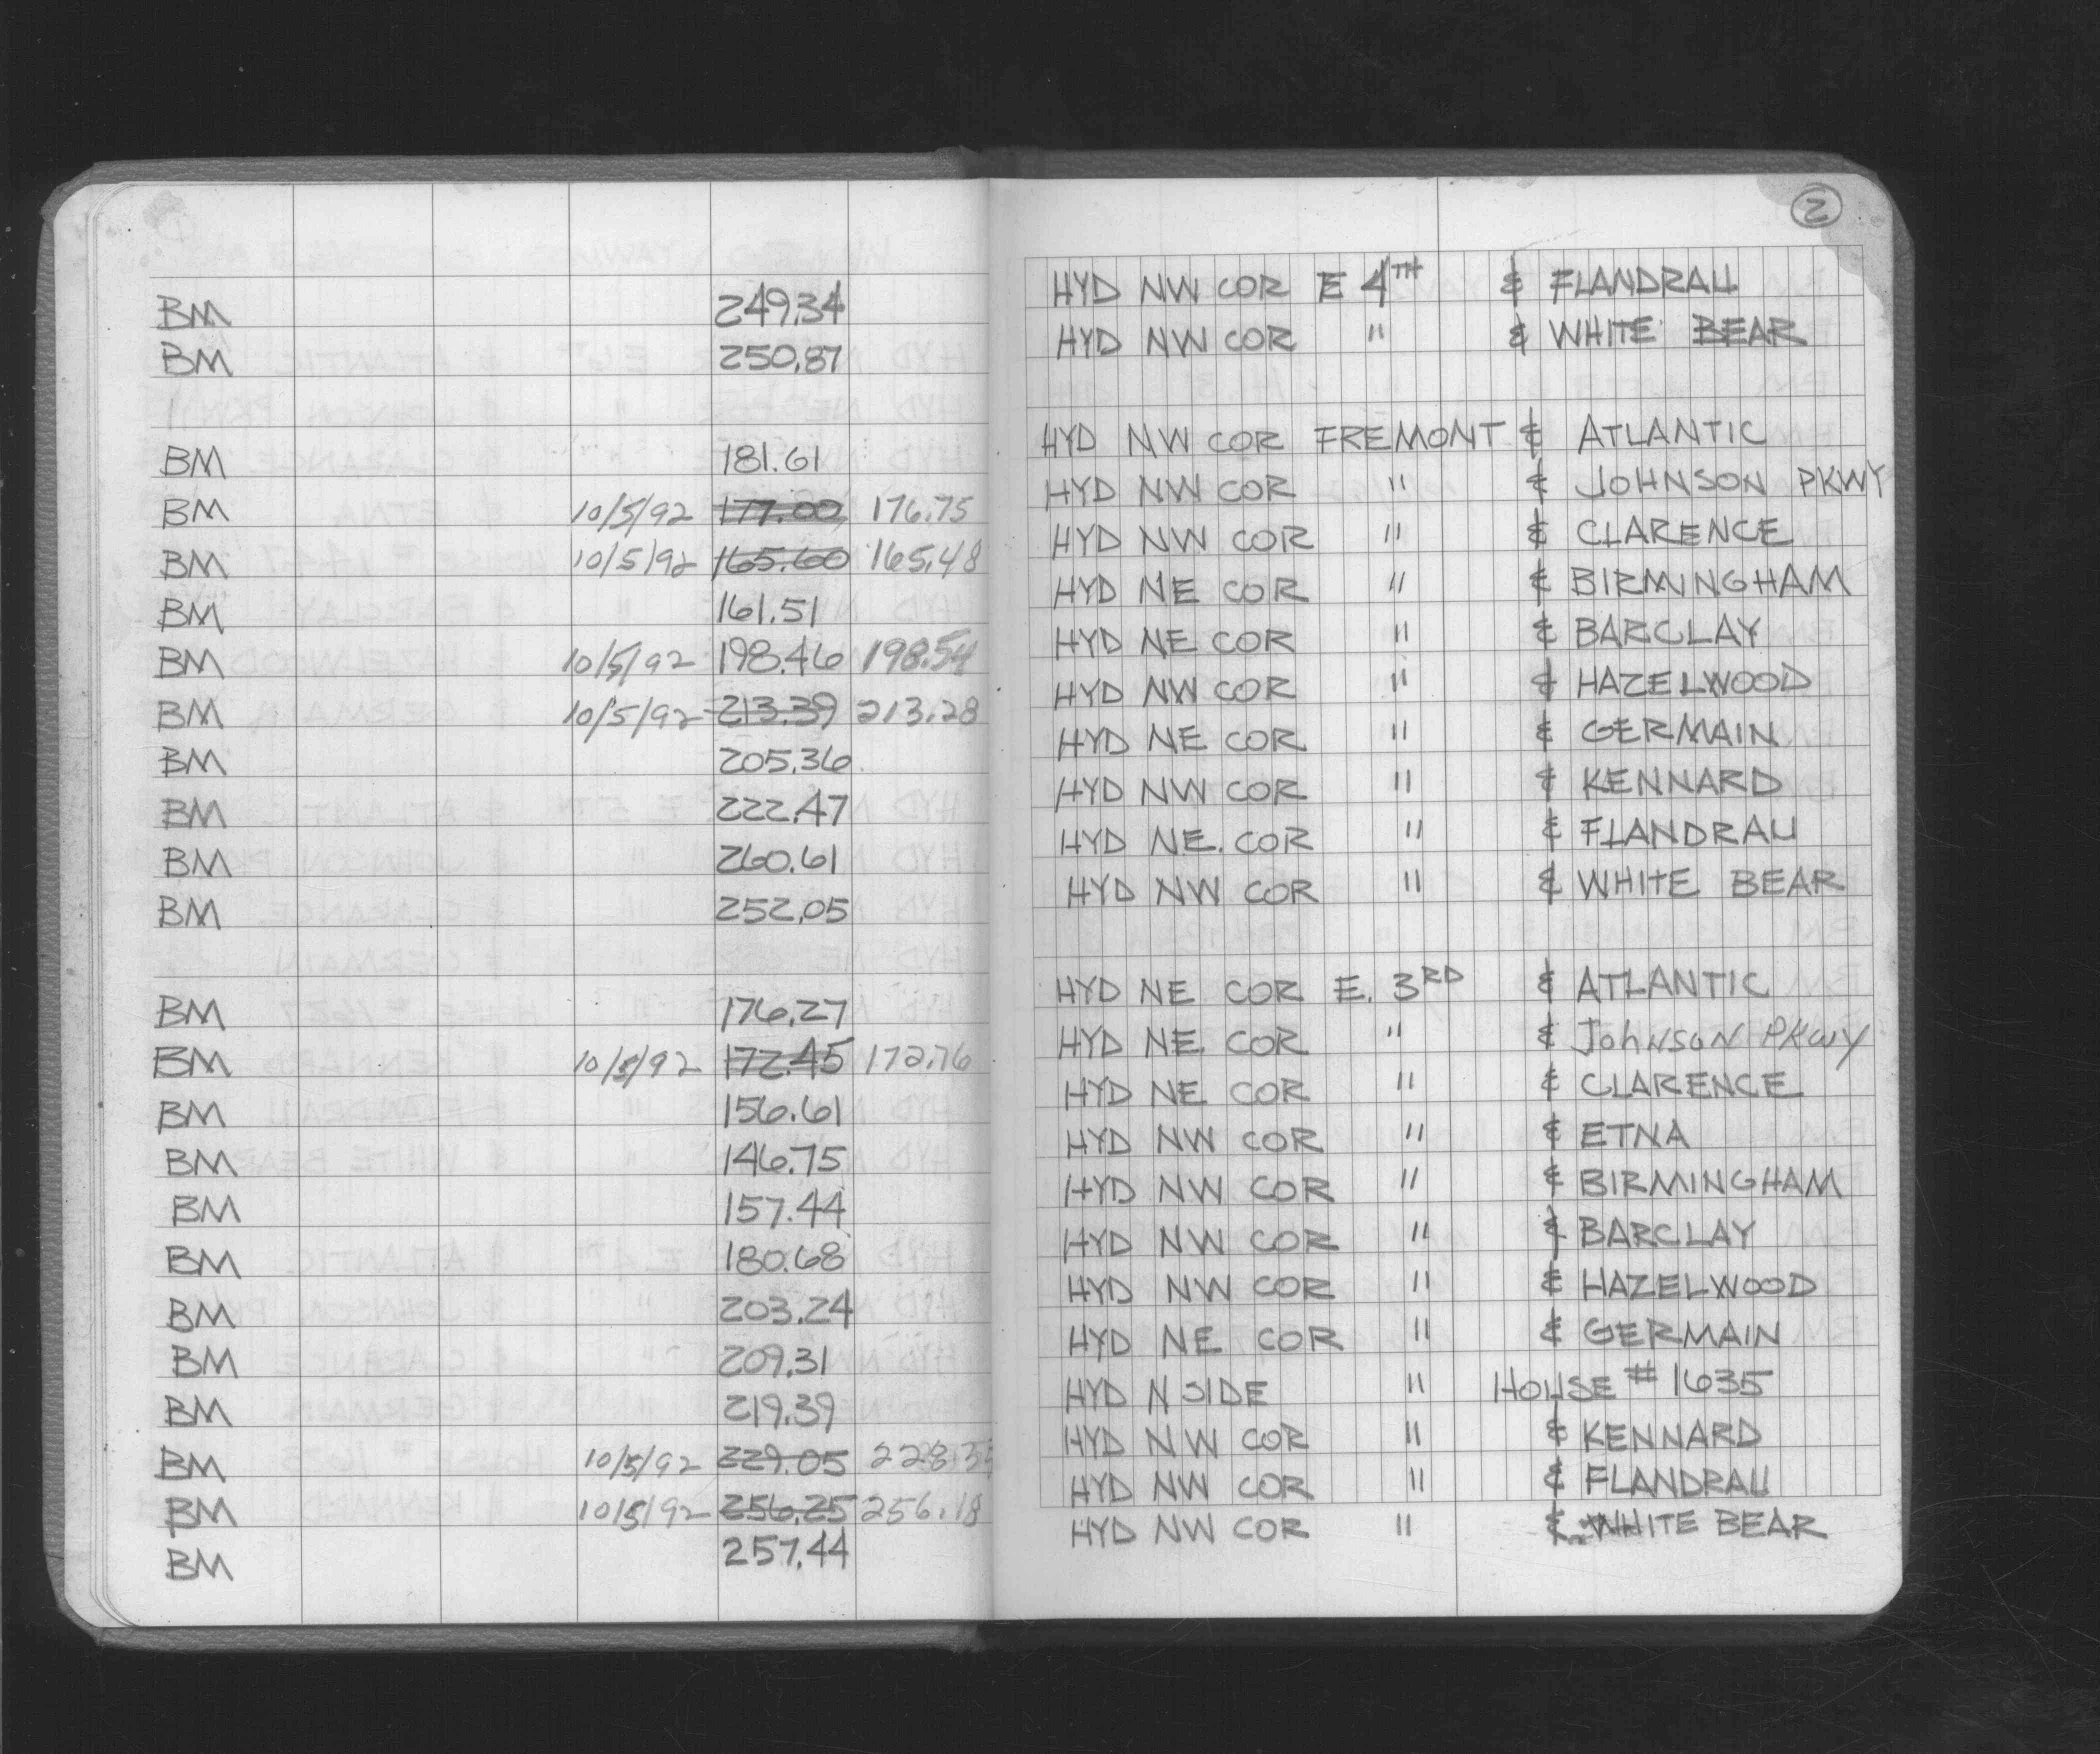 2
BM 249.34 HYD NW COR E 4TH & FLANDRAU
BM 250.87 HYD NW COR " & WHITE BEAR
BM 181.61 HYD NW COR FREMONT & ATLANTIC
BM 10/5/92 177.00 176.75 HYD NW COR " & JOHNSON PKWY
BM 10/5/92 165.60 165.48 HYD NW COR " & CLARENCE
BM 161.51 HYD NE COR " & BIRMINGHAM
BM 10/5/92 198.46 198.54 HYD NE COR " & BARCLAY
BM 10/5/92 213.39 213.28 HYD NW COR " & HAZELWOOD
BM 205.36 HYD NE COR " & GERMAIN
BM 222.47 HYD NW COR " & KENNARD
BM 260.61 HYD NE. COR " & FLANDRAU
BM 252.05 HYD NW COR " & WHITE BEAR
BM 176.27 HYD NE COR E. 3RD & ATLANTIC
BM 10/5/92 172.45 172.76 HYD NE COR " & Johnson PKwy
BM 156.61 HYD NE COR " & CLARENCE
BM 146.75 HYD NW COR " & ETNA
BM 157.44 HYD NW COR " & BIRMINGHAM
BM 180.68 HYD NW COR " & BARCLAY
BM 203.24 HYD NW COR " & HAZELWOOD
BM 209.31 HYD NE COR " & GERMAIN
BM 219.39 HYD N SIDE " HOUSE # 1635
BM 10/5/92 229.05 HYD NW COR " & KENNARD
BM 10/5/92 256.25 256.18 HYD NW COR " & FLANDRAU
BM 257.44 HYD NW COR " & WHITE BEAR